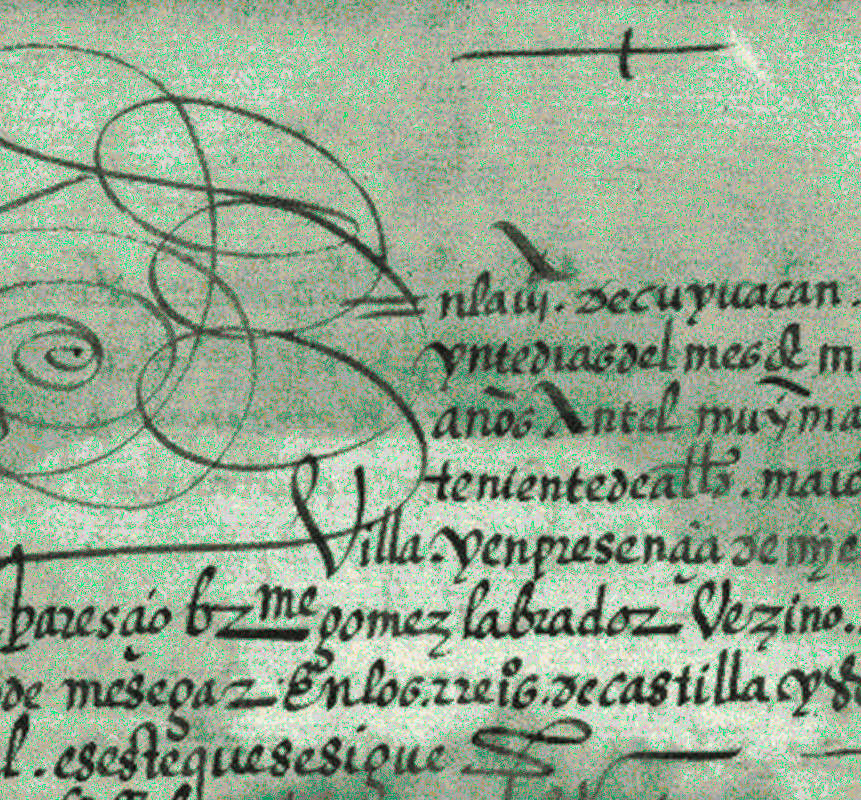 nla vi. de cuyuacan
ynte dias del mes de m
años Antel muy ma
teniente de alld. maior
Villa. y en presençia de my e
paresçio bzme gomez labrador Vezino.
de meseguar En los rreios. de castilla y
l. es este que se sigue